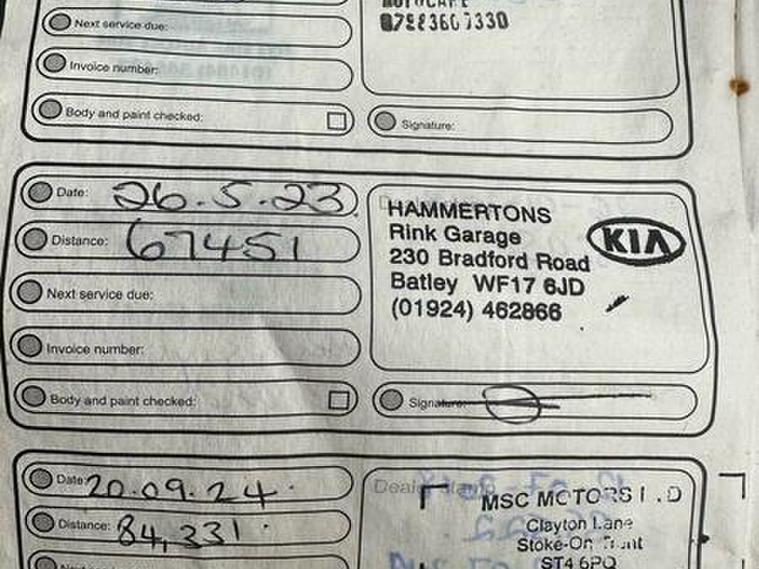 Next service due:
07983607330
Invoice number:
Body and paint checked:
Signature:
Date: 26.5.23
Distance: 67451
Next service due:
Invoice number:
Body and paint checked:
HAMMERTONS
Rink Garage
230 Bradford Road
Batley WF17 6JD
(01924) 462866
KIA
Signature:
Date: 20.09.24
Distance: 84,331
MSC MOTORS
Clayton Lane
Stoke-On
ST4 6PQ